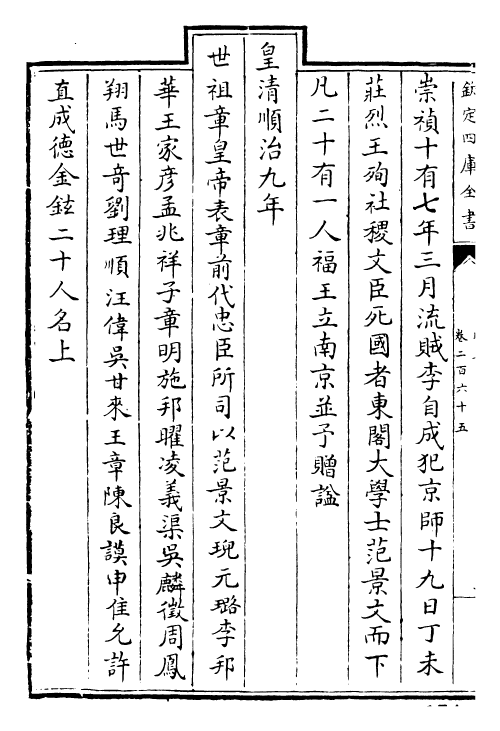 欽定四庫全書
卷二百六十五
崇禎十有七年三月流賊李自成犯京師十九日丁未
莊烈王殉社稷文臣死國者東閣大學士范景文而下
凡二十有一人福王立南京並予贈諡
皇清順治九年
世祖章皇帝表章前代忠臣所司以范景文倪元璐李邦
華王家彥孟兆祥子章明施邦曜凌義渠吳麟徵周鳳
翔馬世奇劉理順汪偉吳甘來王章陳良謨申佳允許
直成德金鉉二十人名上